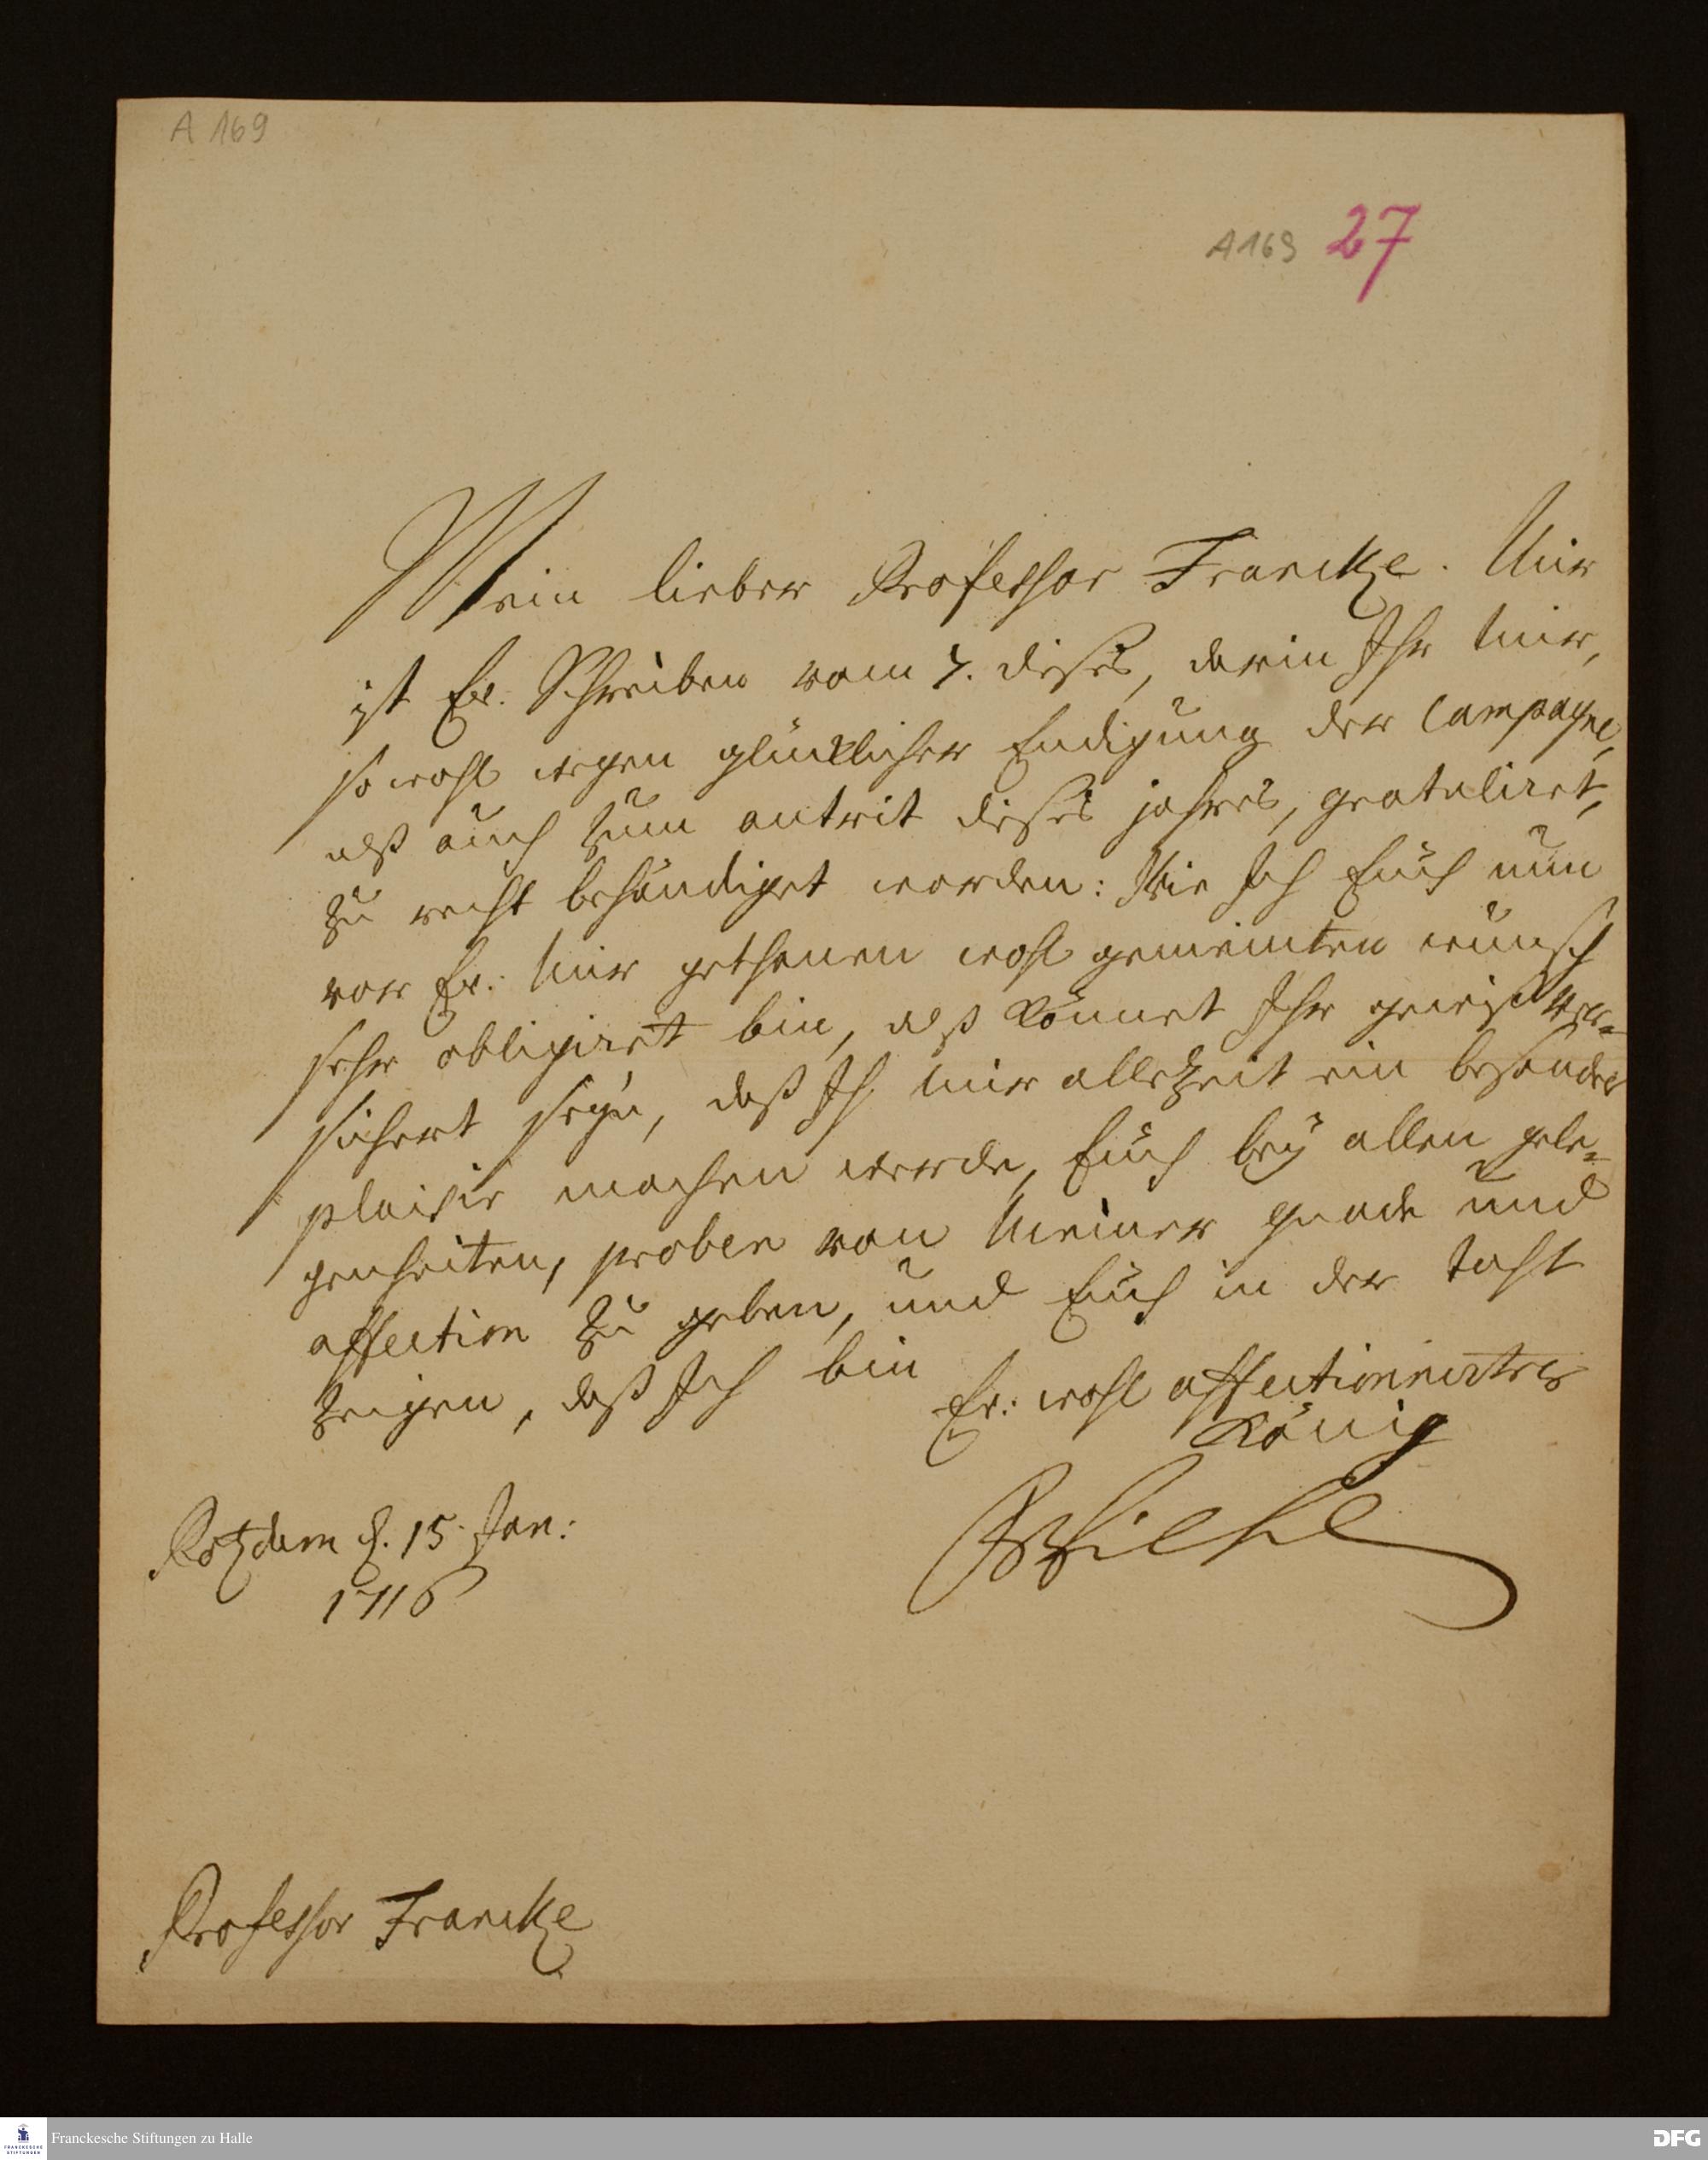 A 169
A 169 27
Mein lieber Professor Francke. Mir
ist Ew: Schreiben vom 7. dieses, darin Ihr Mir,
so wohl wegen glücklicher Endigung der Campagne,
alß auch zum antrit dieses jahres, gratuliret,
zu recht behändiget worden: Wie Ich Euch nun
vor Ew: Mir gethanen wohl gemeinten wunsch
sehr obligiret bin, alß könnet Ihr gewiß ver-
sichert seyn, daß Ich Mir allezeit ein besonder
plaisir machen werde, Euch bey allen gele-
genheiten, proben von Meiner gnade und
affection zu geben, und Euch in der taht
zeigen, daß Ich bin
Ew: wohl affectionirter
König
FrWilhelm
Potzdam d. 15 Jan:
1716
Professor Francke
Franckesche Stiftungen zu Halle
FRANCKESCHE
STIFTUNGEN
DFG